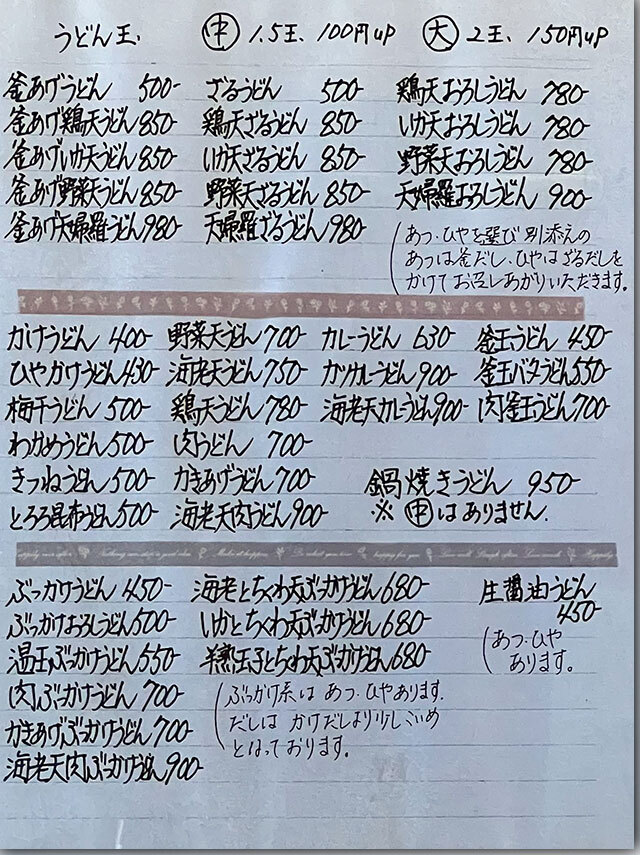 うどん玉 ㊥ 1.5玉、100円up 大 2玉、150円up
釜あげうどん 500- ざるうどん 500- 鶏天おろしうどん 780-
釜あげ鶏天うどん 850- 鶏天ざるうどん 850- いか天おろしうどん 780-
釜あげいか天うどん 850- いか天ざるうどん 850- 野菜天おろしうどん 780-
釜あげ野菜天うどん 850- 野菜天ざるうどん 850- 天婦羅おろしうどん 900-
釜あげ天婦羅うどん 980- 天婦羅ざるうどん 980-
あつ・ひやを選び 別添えの
あつは釜だし、ひやはざるだしを
かけてお召しあがりいただきます。
かけうどん 400- 野菜天うどん 700- カレーうどん 630- 釜玉うどん 450-
ひやかけうどん 430- 海老天うどん 750- カツカレーうどん 900- 釜玉バターうどん 550-
梅干うどん 500- 鶏天うどん 780- 海老天カレーうどん 900- 肉釜玉うどん 700-
わかめうどん 500- 肉うどん 700-
きつねうどん 500- かきあげうどん 700- 鍋焼きうどん 950-
とろろ昆布うどん 500- 海老天肉うどん 900- ※ ㊥はありません.
ぶっかけうどん 450- 海老とちくわ天ぶっかけうどん 680- 生醤油うどん
450-
ぶっかけおろしうどん 500- いかとちくわ天ぶっかけうどん 680-
温玉ぶっかけうどん 550- 半熟玉子とちくわ天ぶっかけうどん 680-
あつ・ひや
あります。
肉ぶっかけうどん 700-
かきあげぶっかけうどん 700-
海老天肉ぶっかけうどん 900-
ぶっかけ系は あつ・ひやあります.
だしは かけだしより少しこいめ
となっております。